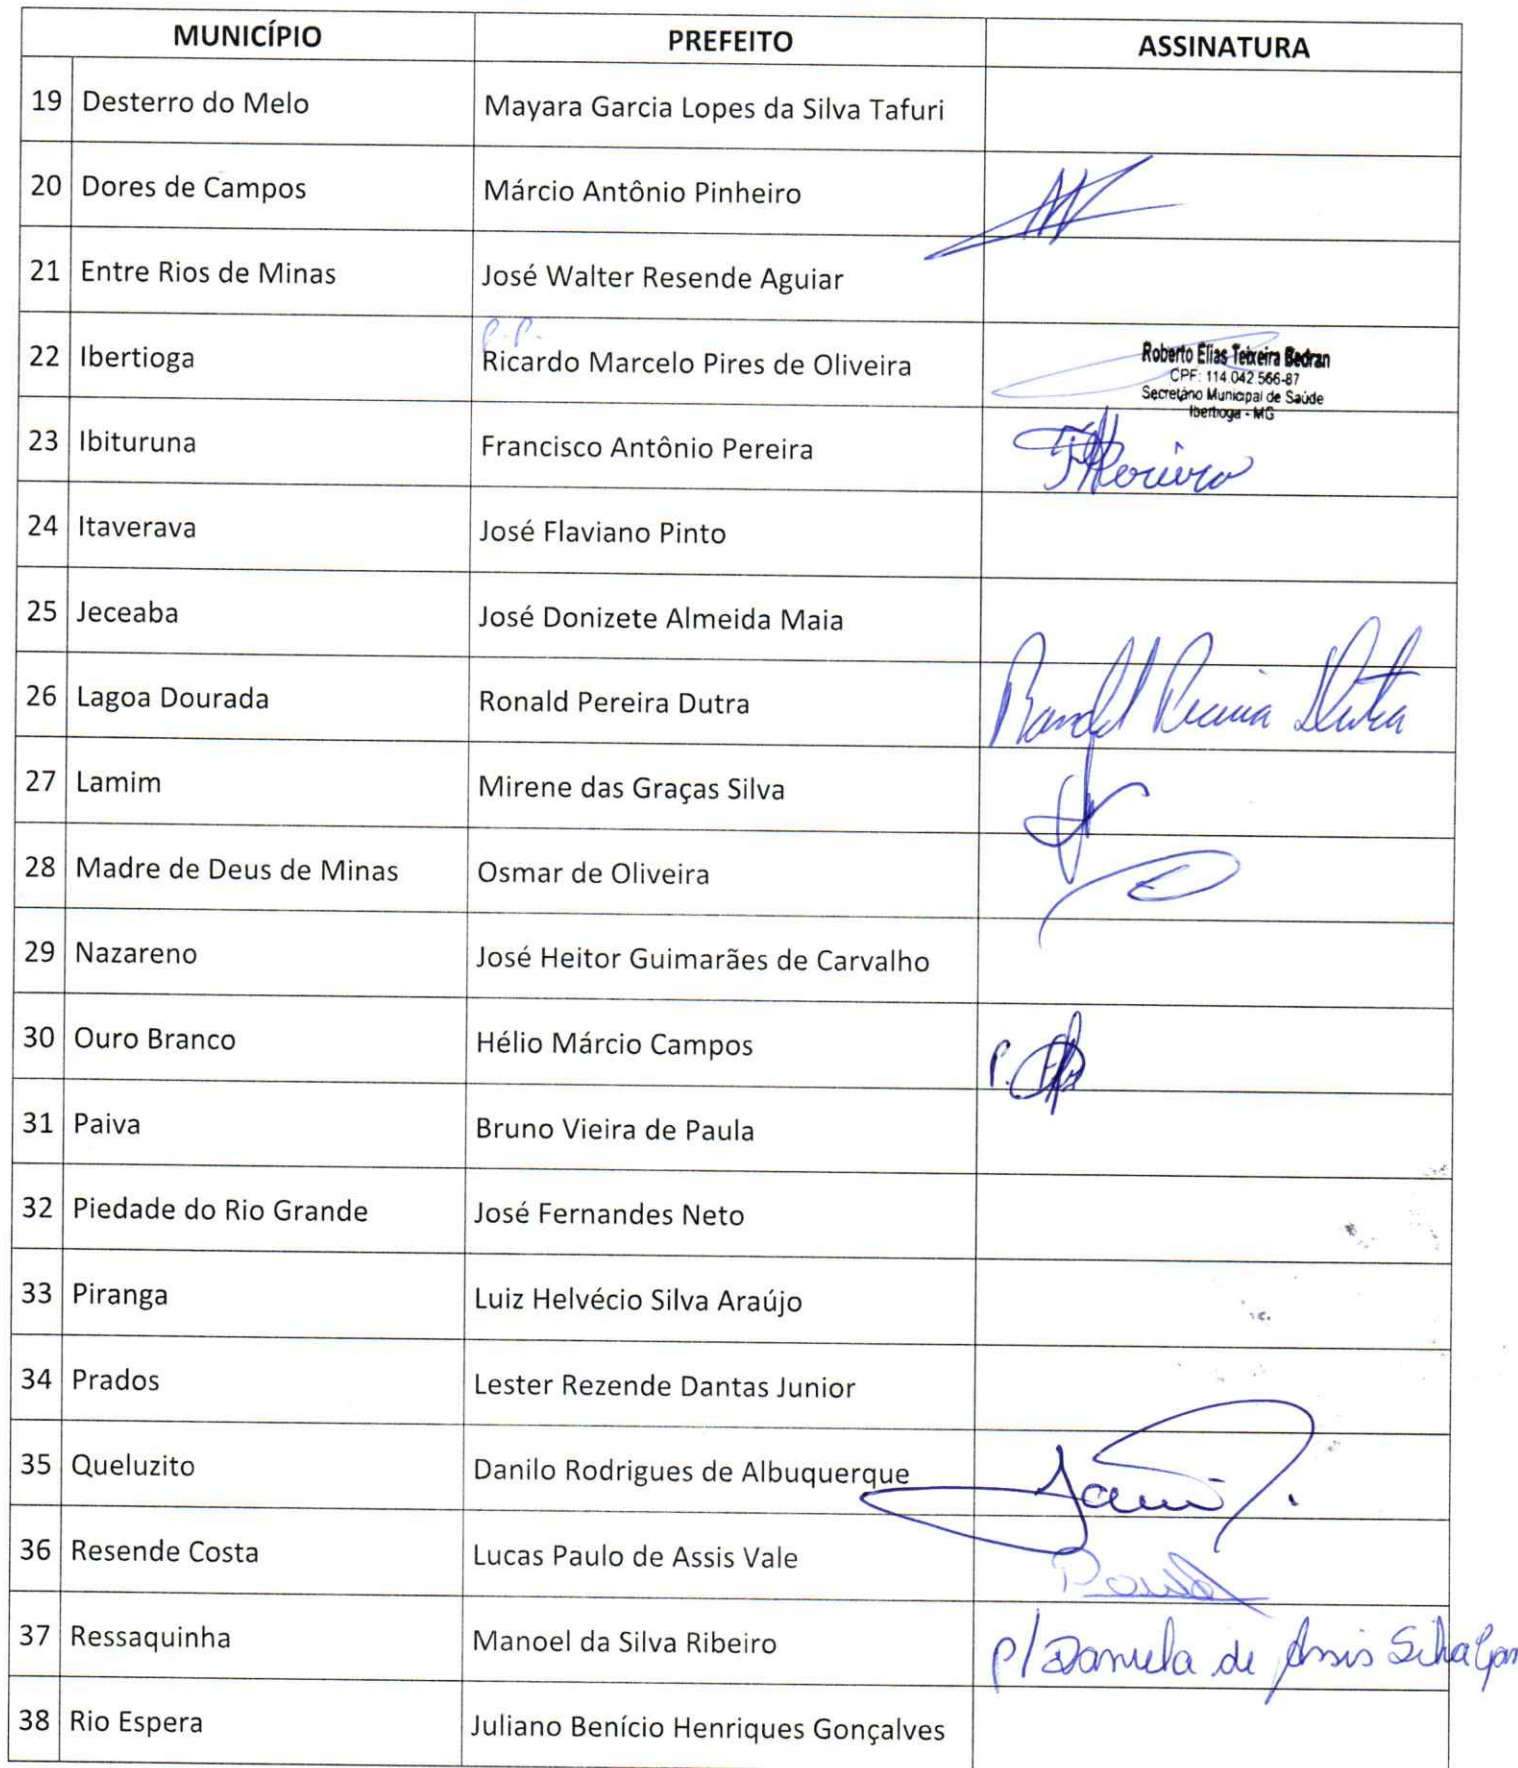 MUNICÍPIO PREFEITO ASSINATURA
19 Desterro do Melo Mayara Garcia Lopes da Silva Tafuri
20 Dores de Campos Márcio Antônio Pinheiro
21 Entre Rios de Minas José Walter Resende Aguiar
P.P.
22 Ibertioga Ricardo Marcelo Pires de Oliveira
Roberto Elias Teixeira Bedran
CPF: 114.042.566-87
Secretário Municipal de Saúde
Ibertioga - MG
23 Ibituruna Francisco Antônio Pereira
24 Itaverava José Flaviano Pinto
25 Jeceaba José Donizete Almeida Maia
26 Lagoa Dourada Ronald Pereira Dutra Ronald Pereira Dutra
27 Lamim Mirene das Graças Silva
28 Madre de Deus de Minas Osmar de Oliveira
29 Nazareno José Heitor Guimarães de Carvalho
30 Ouro Branco Hélio Márcio Campos P.
31 Paiva Bruno Vieira de Paula
32 Piedade do Rio Grande José Fernandes Neto
33 Piranga Luiz Helvécio Silva Araújo
34 Prados Lester Rezende Dantas Junior
35 Queluzito Danilo Rodrigues de Albuquerque
36 Resende Costa Lucas Paulo de Assis Vale
37 Ressaquinha Manoel da Silva Ribeiro p/ Daniela de Assis Silva
38 Rio Espera Juliano Benício Henriques Gonçalves